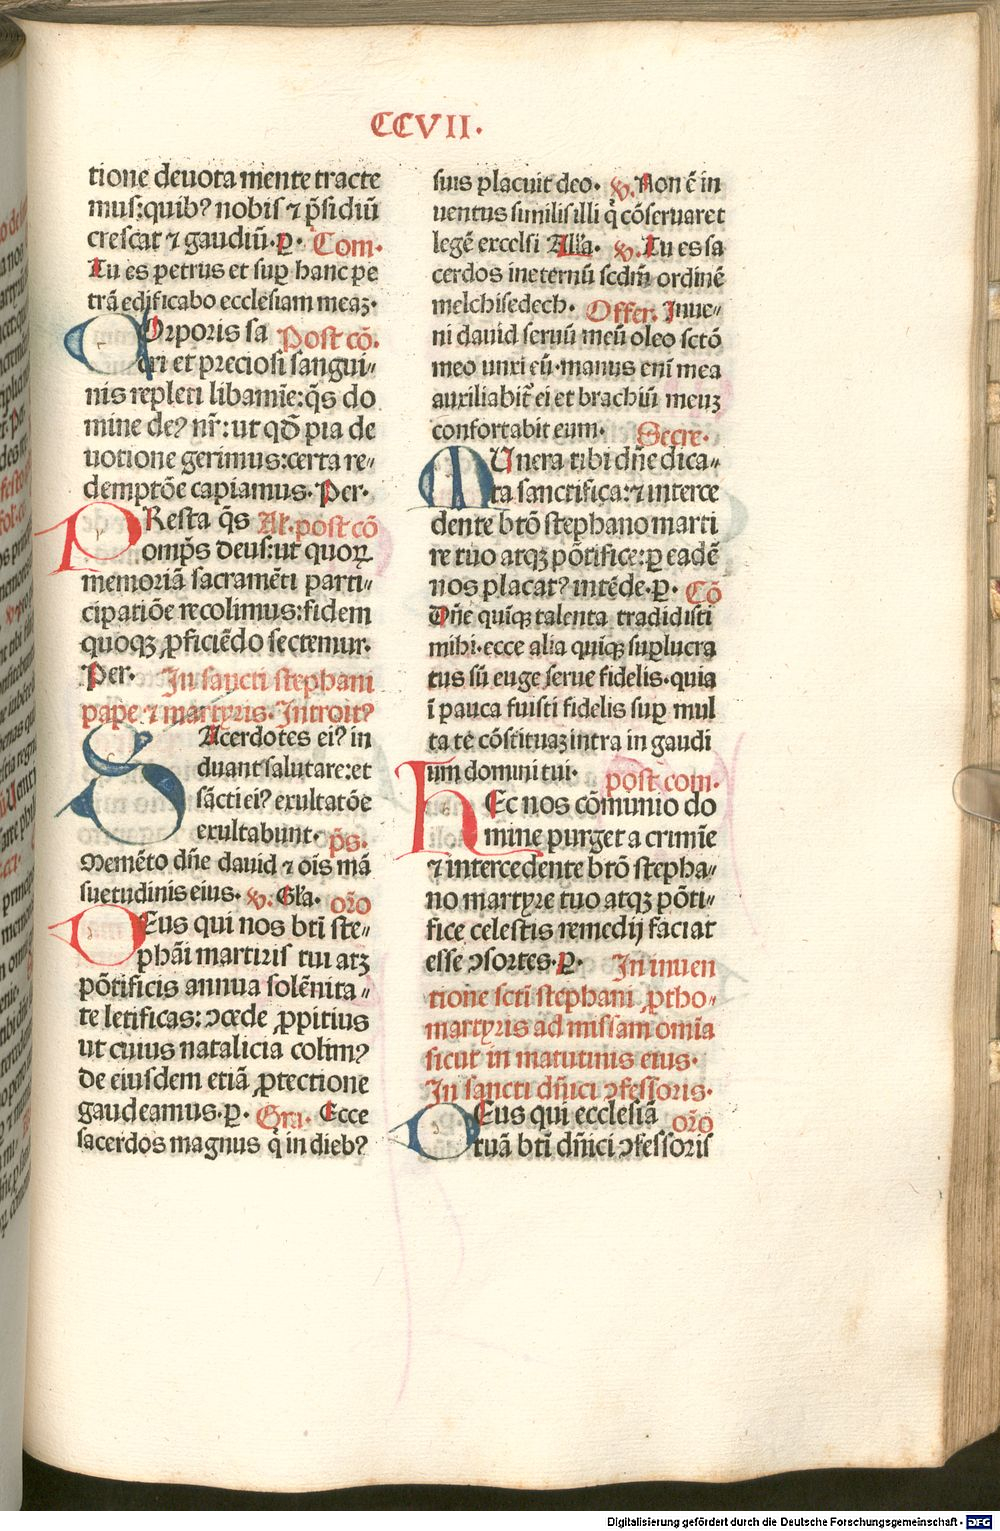 CCVII.
tione deuota mente tracte
mus:quibꝰ nobis ⁊ p̄sidiū
crescat ⁊ gaudiū.ꝑ. Com.
Tu es petrus et suꝑ hanc pe
trā edificabo ecclesiam meaꝫ.
COrporis sa Post cō.
cri et preciosi sangui⸗
nis repleti libamīe:q̄s do
mine deꝰ nr̄:ut qđ pia de
uotione gerimus:certa re⸗
demptōe capiamus. Per.
PResta q̄s Al. post cō
omp̄s deus:ut quoꝝ
memoriā sacramēti parti⸗
cipatiōe recolimus:fidem
quoqꝫ ꝓficiēdo sectemur.
Per. In sancti stephani
pape ⁊ martyris. Introitꝰ
SAcerdotes eiꝰ in
duant salutare:et
sācti eiꝰ exultatōe
exultabunt. p̄s.
Memēto dn̄e dauid ⁊ oīs mā
suetudinis eius. ℣. Gl̄a. or̄o
DEus qui nos bt̄i ste⸗
phāi martiris tui atꝫ
pōtificis annua solēnita⸗
te letificas: ꝯcede ꝓpitius
ut cuius natalicia colimꝰ
de eiusdem etiā ꝓtectione
gaudeamus.ꝑ. Gra. Ecce
sacerdos magnus q̇ in diebꝰ
suis placuit deo. ℣. Non ē in
uentus similis illi q̇ cōseruaret
legē excelsi All̄a. ℣. Tu es sa
cerdos in eternū scdm̄ ordinē
melchisedech. Offer. Inue⸗
ni dauid seruū meū oleo sctō
meo unxi eū.manus enī mea
auxiliabit̄ ei et brachiū meuꝫ
confortabit eum. Secre.
MUnera tibi dn̄e dica⸗
ta sanctifica:⁊ interce
dente btō stephano marti
re tuo atqꝫ pōtifice:ꝑ eadē
nos placatꝰ intēde.ꝑ. Cō
Dn̄e quīqꝫ talenta tradidisti
mihi.ecce alia quīqꝫ suꝑlucra
tus sū euge serue fidelis.quia
ī pauca fuisti fidelis suꝑ mul
ta te cōstituaꝫ intra in gaudi
um domini tui. post com.
HEc nos cōmunio do
mine purget a crimīe
⁊ intercedente btō stepha⸗
no martyre tuo atqꝫ pōti⸗
fice celestis remedij faciat
esse ꝯsortes.ꝑ. In inuen
tione scti stephani ꝓtho⸗
martyris ad missam omīa
sicut in matutinis eius.
In sancti dn̄ici ꝯfessoris.
DEus qui ecclesiā or̄o
tuā bt̄i dn̄ici ꝯfessoris
Digitalisierung gefördert durch die Deutsche Forschungsgemeinschaft - DFG